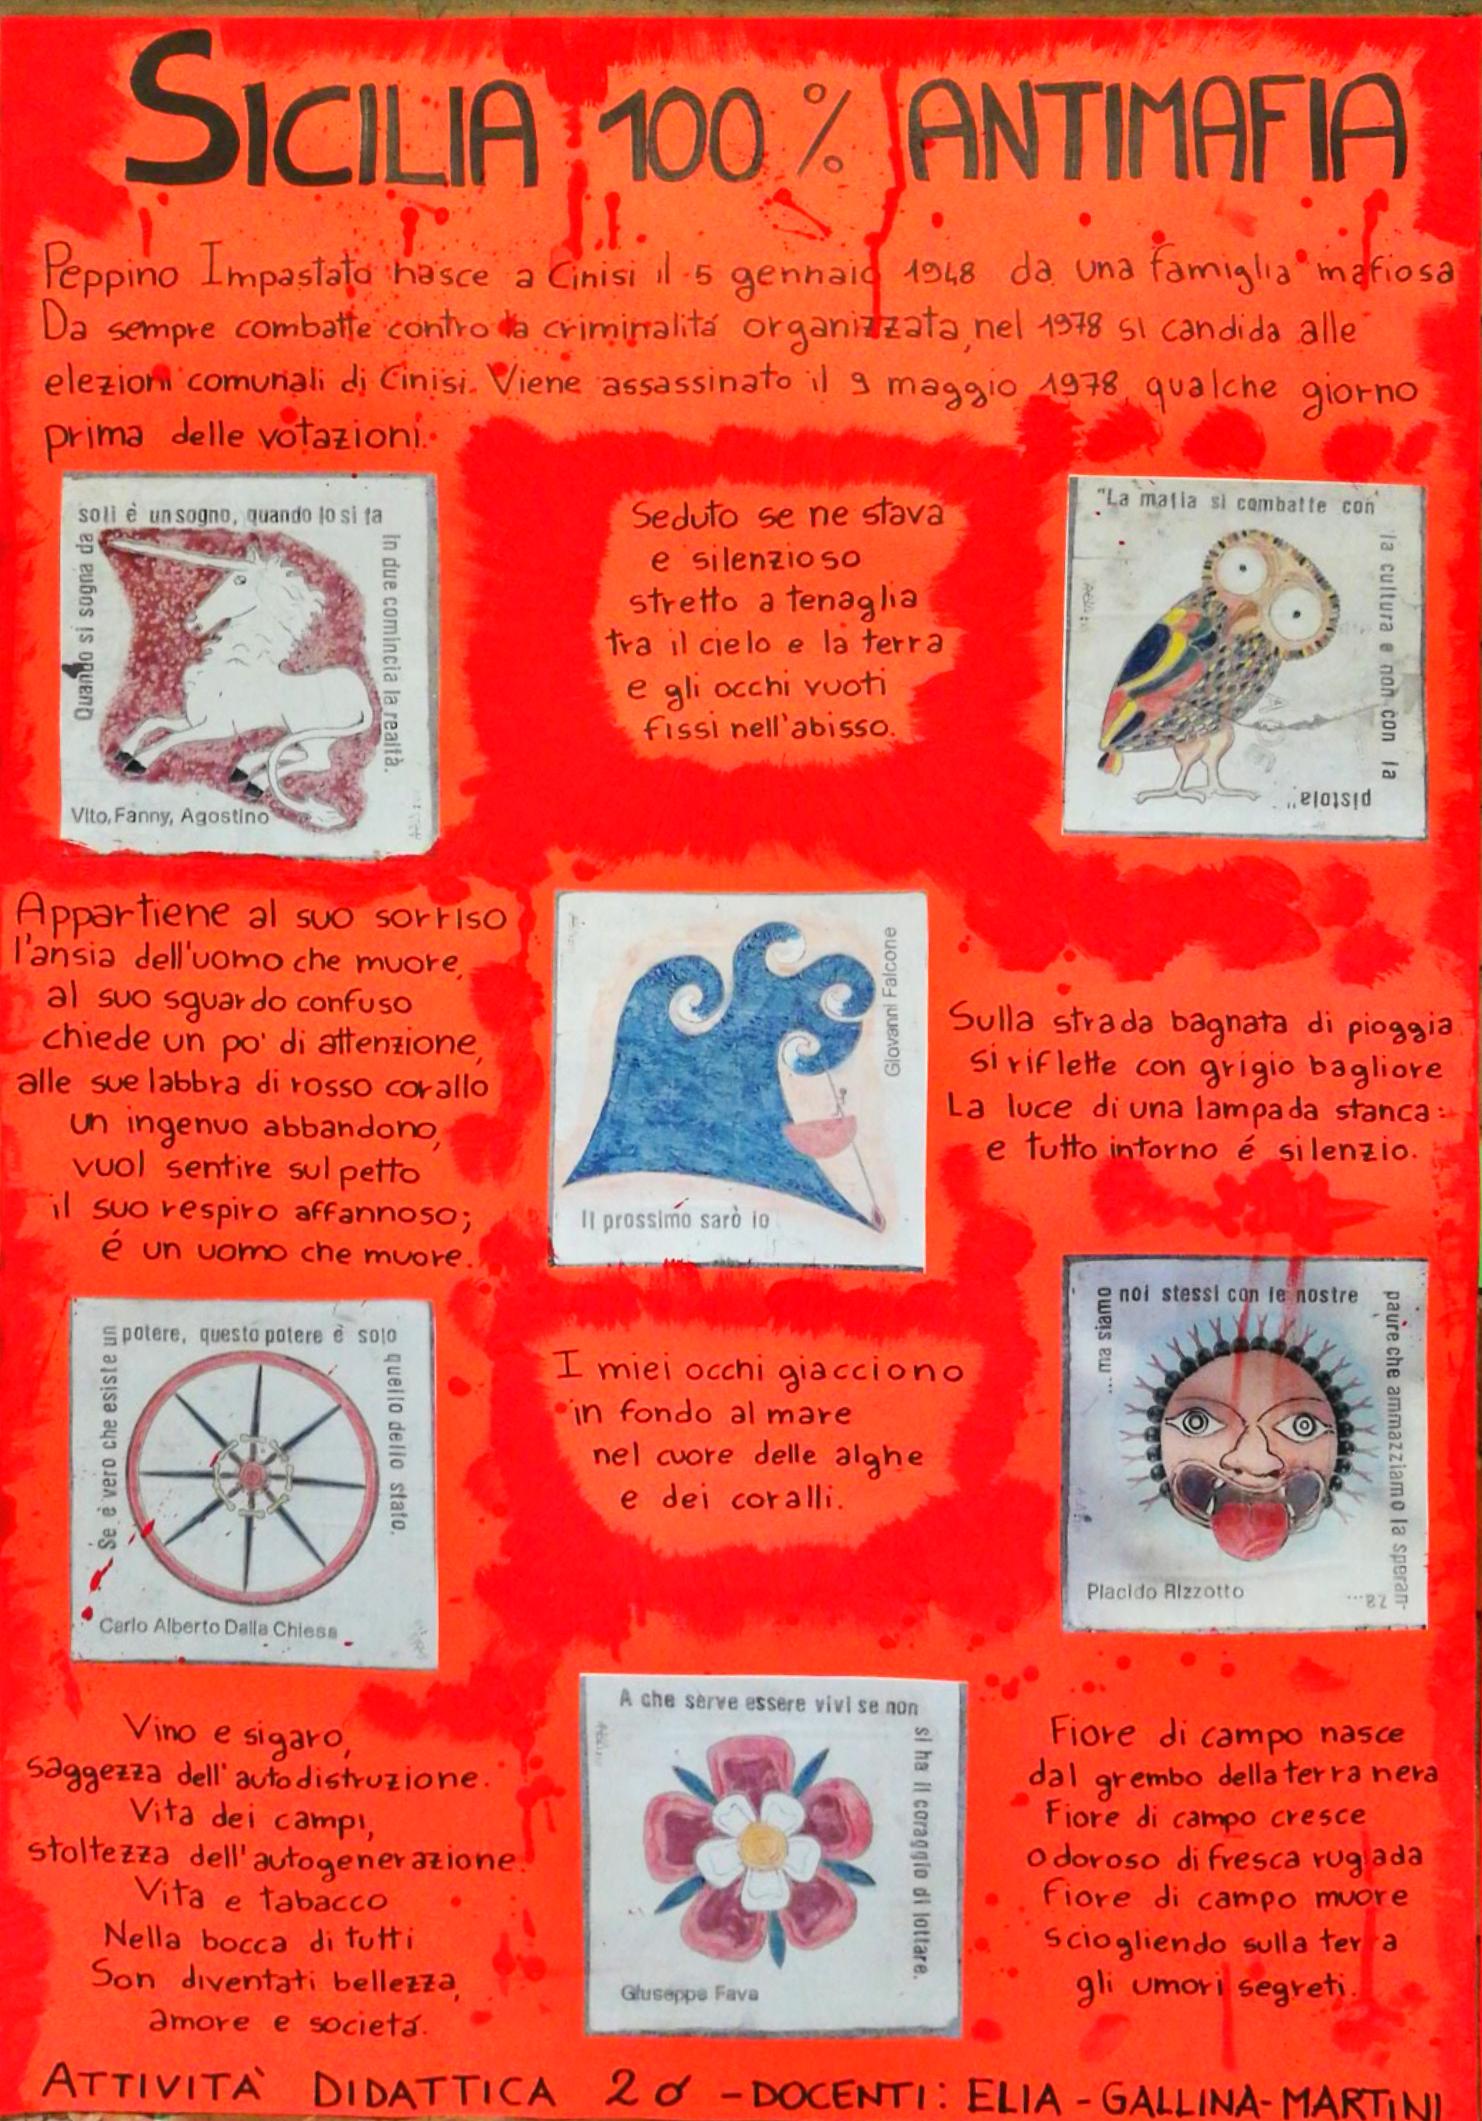 SICILIA 100 % ANTIMAFIA
Peppino Impastato nasce a Cinisi il 5 gennaio 1948 da una famiglia mafiosa
Da sempre combatte contro la criminalitá organizzata, nel 1978 si candida alle
elezioni comunali di Cinisi. Viene assassinato il 9 maggio 1978, qualche giorno
prima delle votazioni.
Quando si sogna da
soli è un sogno, quando lo si fa
in due comincia la realtà.
Vito, Fanny, Agostino
Seduto se ne stava
e silenzioso
stretto a tenaglia
tra il cielo e la terra
e gli occhi vuoti
fissi nell'abisso.
"La mafia si combatte con
la cultura e non con la
pistola"
Appartiene al suo sorriso
l'ansia dell'uomo che muore,
al suo sguardo confuso
chiede un po' di attenzione,
alle sue labbra di rosso corallo
un ingenuo abbandono,
vuol sentire sul petto
il suo respiro affannoso;
é un uomo che muore.
Giovanni Falcone
Il prossimo sarò io
Sulla strada bagnata di pioggia
si riflette con grigio bagliore
La luce di una lampada stanca:
e tutto intorno é silenzio.
Se è vero che esiste un
potere, questo potere è solo
quello dello stato.
Carlo Alberto Dalla Chiesa
I miei occhi giacciono
in fondo al mare
nel cuore delle alghe
e dei coralli.
...ma siamo
noi stessi con le nostre
paure che ammazziamo la speran-
za...
Placido Rizzotto
Vino e sigaro,
saggezza dell'autodistruzione.
Vita dei campi,
stoltezza dell'autogenerazione.
Vita e tabacco
Nella bocca di tutti
Son diventati bellezza,
amore e societá.
A che serve essere vivi se non
si ha il coraggio di lottare.
Giuseppe Fava
Fiore di campo nasce
dal grembo della terra nera
Fiore di campo cresce
odoroso di fresca rugiada
Fiore di campo muore
sciogliendo sulla terra
gli umori segreti.
ATTIVITÀ DIDATTICA 2 - DOCENTI: ELIA - GALLINA - MARTINI